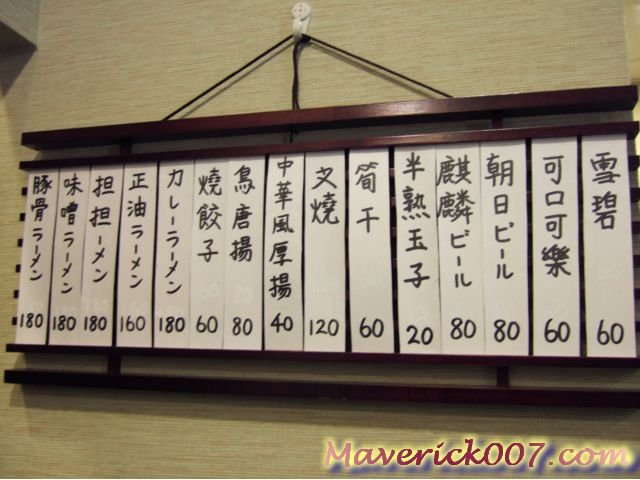 雪碧 60
可口可樂 60
朝日ビール 80
麒麟ビール 80
半熟玉子 20
筍干 60
叉燒 120
中華風厚揚 40
鳥唐揚 80
燒餃子 60
カレーラーメン 180
正油ラーメン 160
担担ーメン 180
味噌ラーメン 180
豚骨ラーメン 180
Maverick007.com